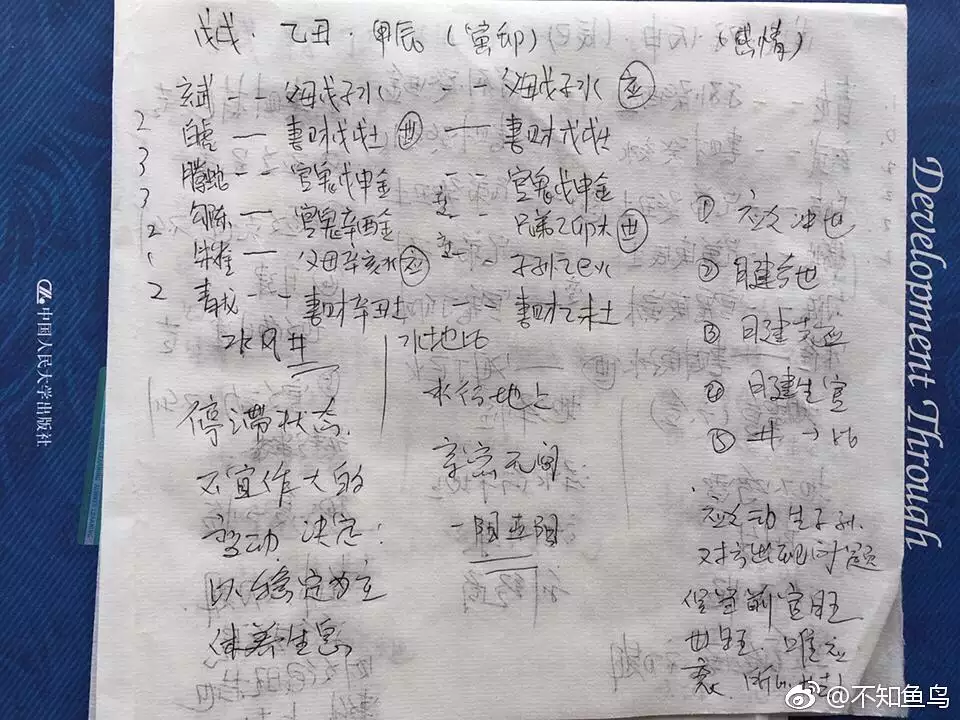 戊戌·乙丑·甲辰（寅卯）（感情）
玄武 -- 父母戊子水 -- 父母戊子水 应
2 白虎 — 妻财戊戌土 世 — 妻财戊戌土
3 腾蛇 -- 官鬼戊申金 -- 官鬼戊申金
3 勾陈 — 官鬼辛酉金 -- 兄弟乙卯木 世
2 朱雀 — 父母辛亥水 应 -- 子孙乙巳火
2 青龙 -- 妻财辛丑土 -- 妻财乙未土
水风井
水地比
停滞状态
不宜作大的
变动 决定
以稳定为主
休养生息
水行地上
亲密无间
一阳五阴
① 应爻冲世
② 月建合世
③ 日建克应
④ 日建生官
⑤ 井→比
应爻动生子孙
对方出现问题
但当前官旺
世旺 唯应
衰
中国人民大学出版社
Development Through
@不知鱼鸟